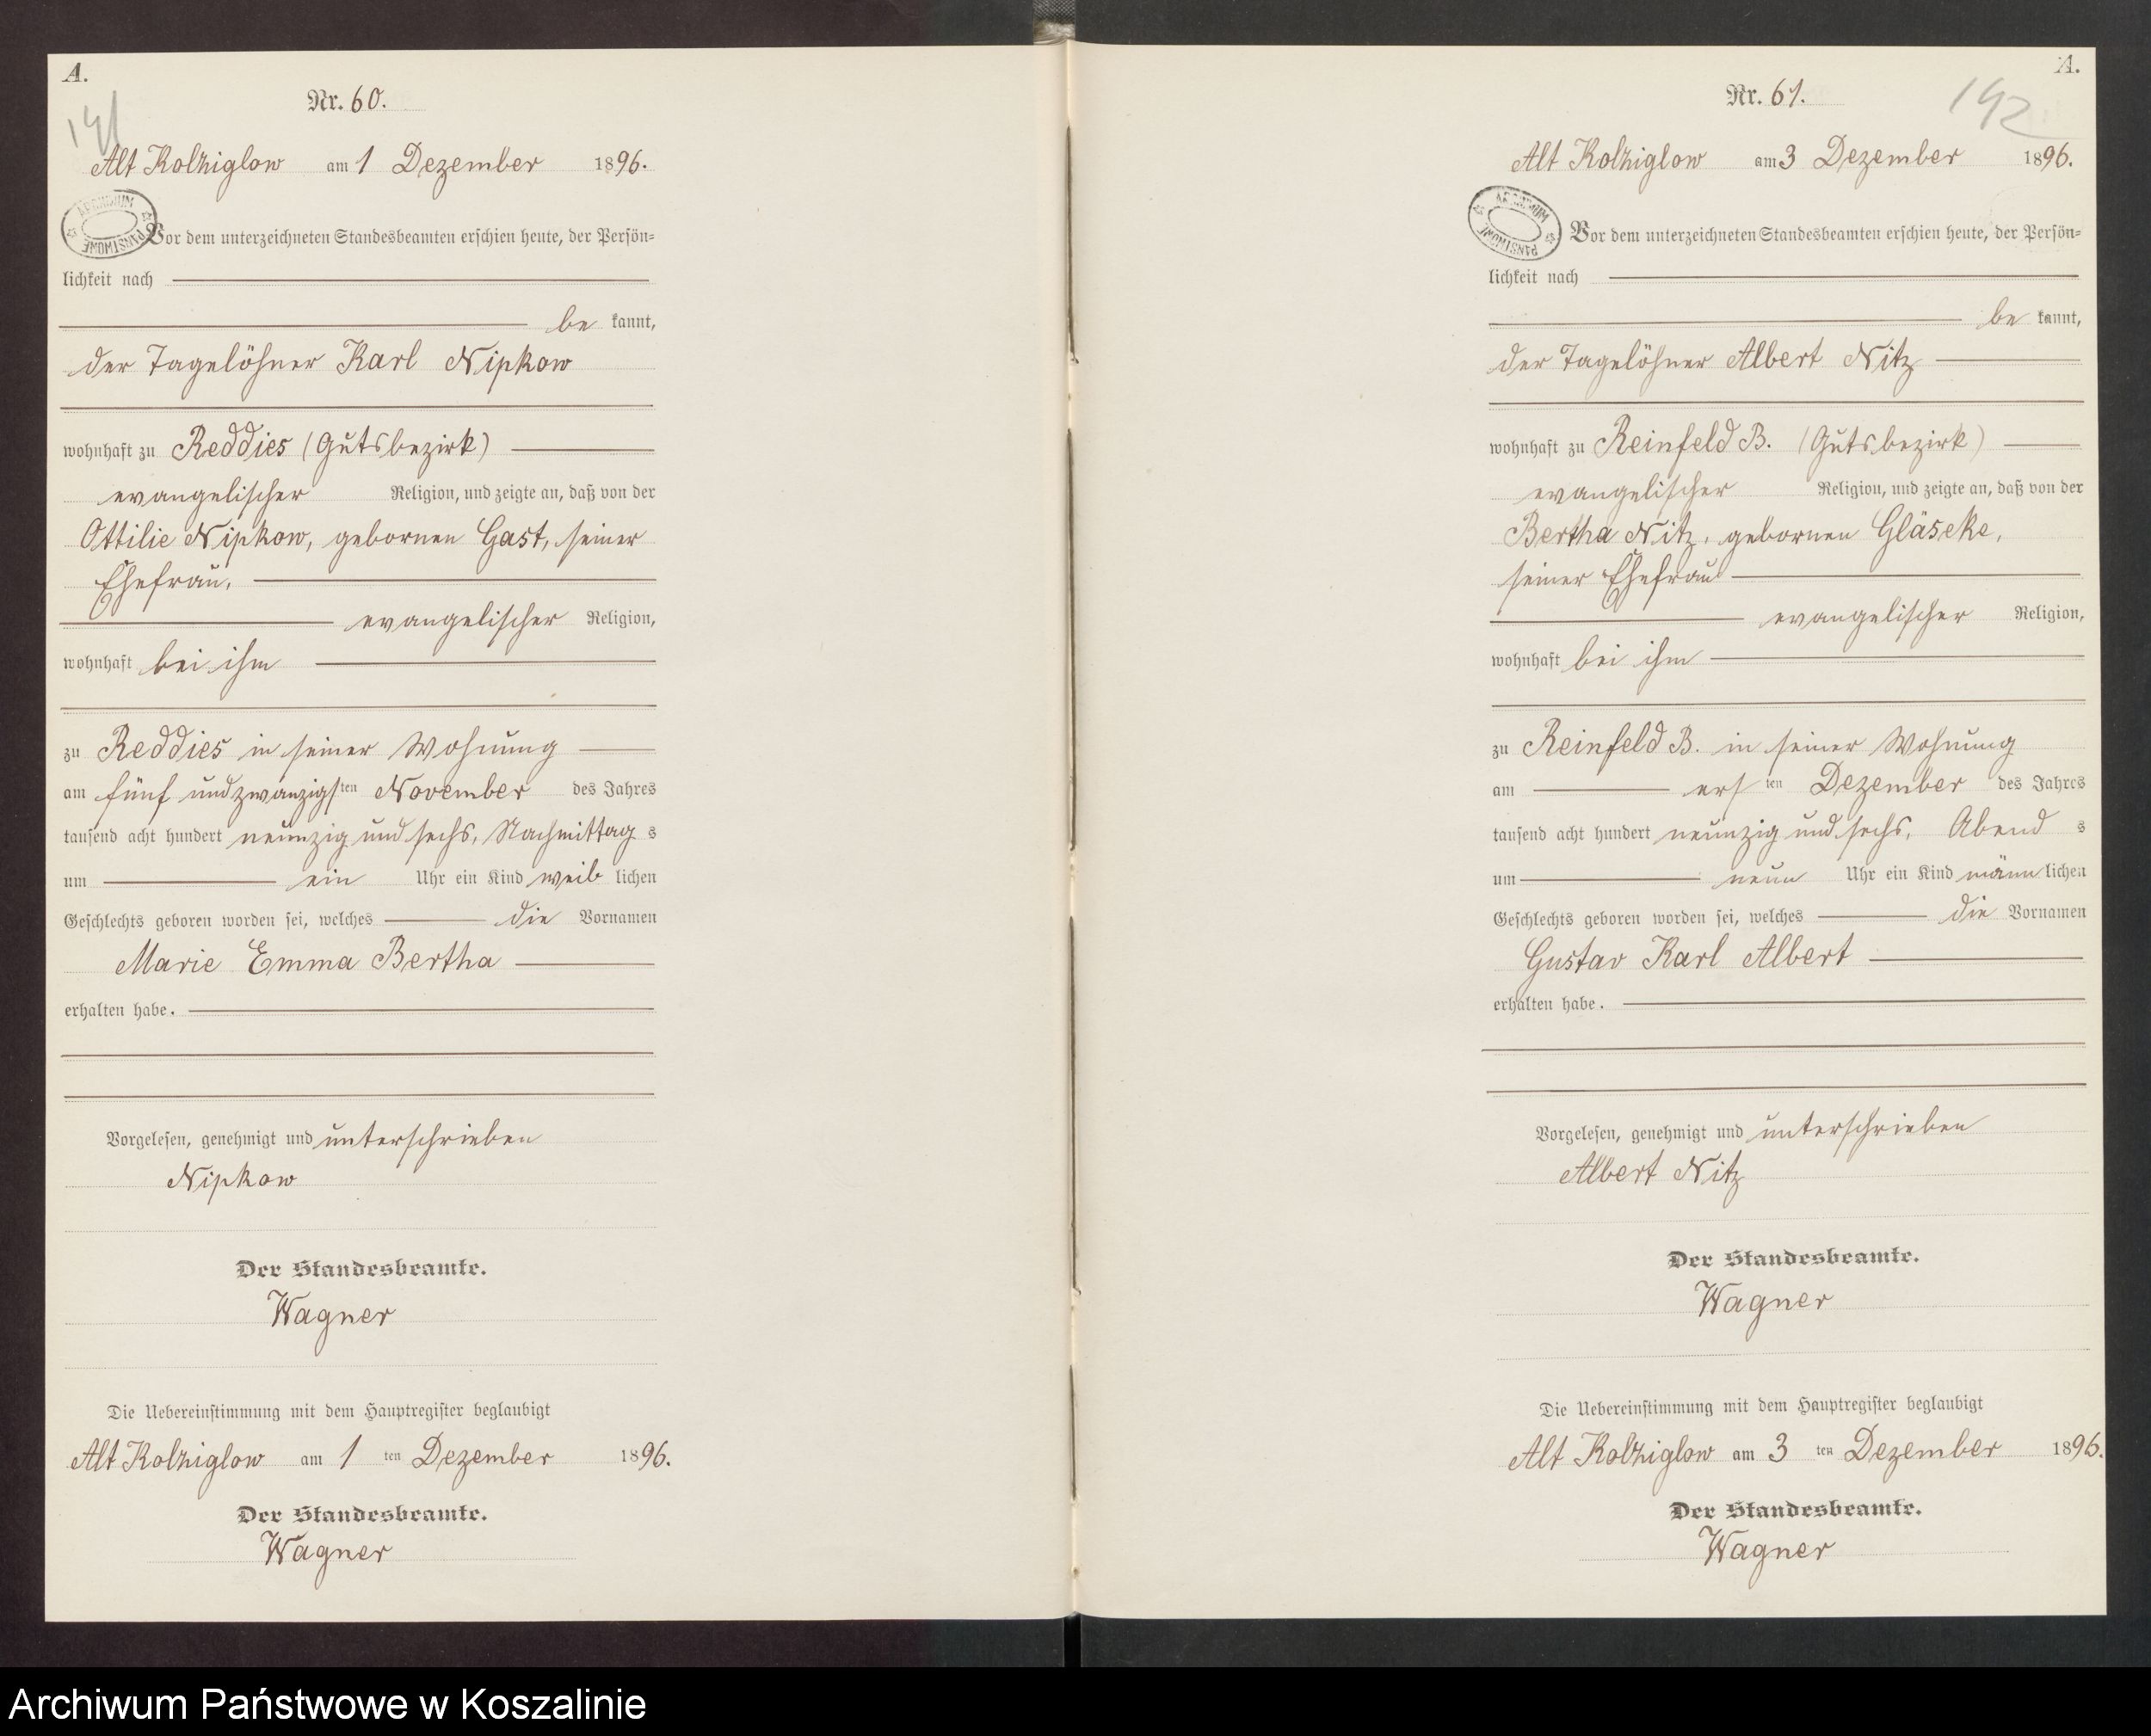 A.
141
Nr. 60.
Alt Kolziglow am 1 Dezember 1896.
ARCHIWUM PAŃSTWOWE
Vor dem unterzeichneten Standesbeamten erschien heute, der Persön-
lichkeit nach
be kannt,
der Tagelöhner Karl Nipkow
wohnhaft zu Reddies (Gutsbezirk)
evangelischer Religion, und zeigte an, daß von der
Ottilie Nipkow, gebornen Gast, seiner
Ehefrau,
evangelischer Religion,
wohnhaft bei ihm
zu Reddies in seiner Wohnung
am fünf und zwanzigsten November des Jahres
tausend acht hundert neunzig und sechs, Nachmittag s
um ein Uhr ein Kind weib lichen
Geschlechts geboren worden sei, welches die Vornamen
Marie Emma Bertha
erhalten habe.
Vorgelesen, genehmigt und unterschrieben
Nipkow
Der Standesbeamte.
Wagner
Die Uebereinstimmung mit dem Hauptregister beglaubigt
Alt Kolziglow am 1 ten Dezember 1896.
Der Standesbeamte.
Wagner
A.
192
Nr. 61.
Alt Kolziglow am 3 Dezember 1896.
ARCHIWUM PAŃSTWOWE
Vor dem unterzeichneten Standesbeamten erschien heute, der Persön-
lichkeit nach
be kannt,
der Tagelöhner Albert Nitz
wohnhaft zu Reinfeld B. (Gutsbezirk)
evangelischer Religion, und zeigte an, daß von der
Bertha Nitz, gebornen Gläseke,
seiner Ehefrau
evangelischer Religion,
wohnhaft bei ihm
zu Reinfeld B. in seiner Wohnung
am ersten Dezember des Jahres
tausend acht hundert neunzig und sechs, Abend s
um neun Uhr ein Kind männ lichen
Geschlechts geboren worden sei, welches die Vornamen
Gustav Karl Albert
erhalten habe.
Vorgelesen, genehmigt und unterschrieben
Albert Nitz
Der Standesbeamte.
Wagner
Die Uebereinstimmung mit dem Hauptregister beglaubigt
Alt Kolziglow am 3 ten Dezember 1896.
Der Standesbeamte.
Wagner
Archiwum Państwowe w Koszalinie